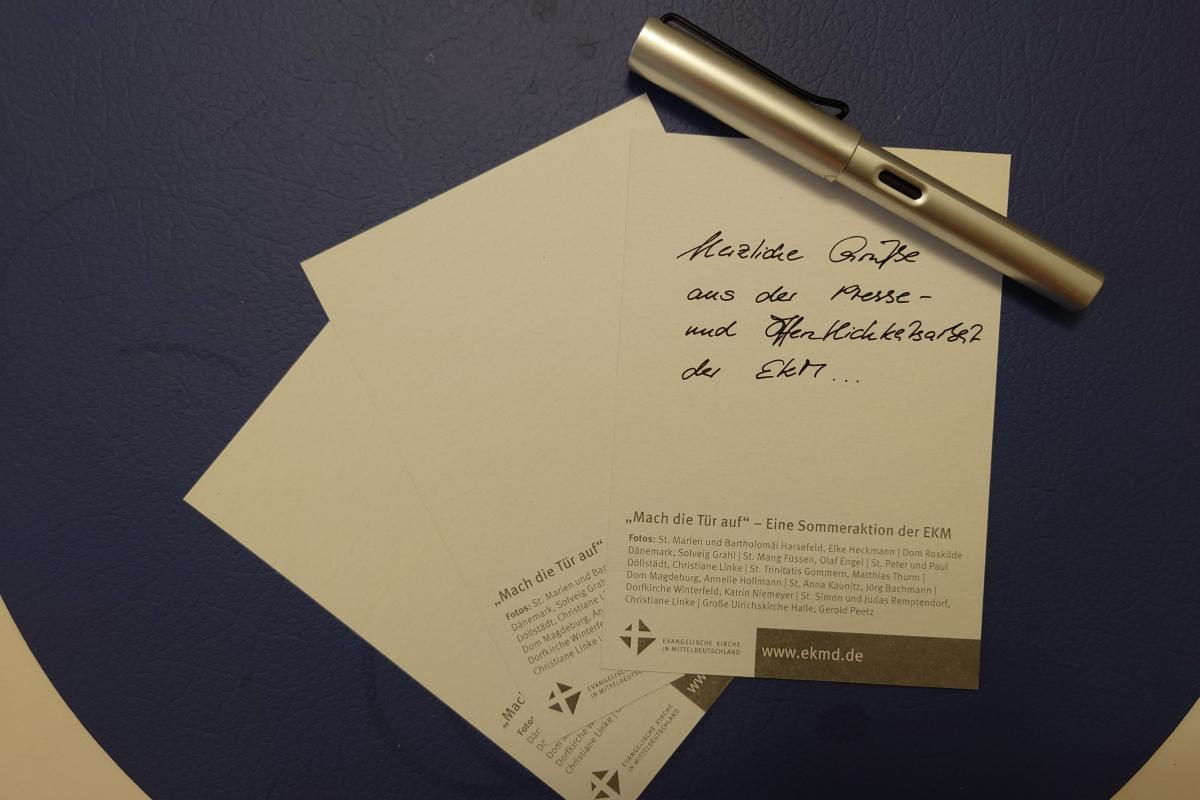 Herzliche Grüße
aus der Presse-
und Öffentlichkeitsarbeit
der EKM...
„Mach die Tür auf“ – Eine Sommeraktion der EKM
Fotos: St. Marien und Bartholomäi Harsefeld, Elke Heckmann | Dom Roskilde
Dänemark, Solveig Grahl | St. Mang Füssen, Olaf Engel | St. Peter und Paul
Döllstädt, Christiane Linke | St. Trinitatis Gommern, Matthias Thurm |
Dom Magdeburg, Annelie Hollmann | St. Anna Kaunitz, Jörg Bachmann |
Dorfkirche Winterfeld, Katrin Niemeyer | St. Simon und Judas Remptendorf,
Christiane Linke | Große Ulrichskirche Halle, Gerold Peetz
EVANGELISCHE KIRCHE
IN MITTELDEUTSCHLAND
www.ekmd.de
„Mach die Tür auf“
Fotos: St. Marien und Bar
Dänemark, Solveig Grah
Döllstädt, Christiane L
Dom Magdeburg, An
Dorfkirche Winterfe
Christiane Linke |
EVANGELISCHE
IN MITTELDEUTS
ww
„Mac
Foto
Dän
Dö
Dom
Dorfkirche W
Christiane Linke | G
EVANGELISCHE KIRCHE
IN MITTELDEUTSCHLAND